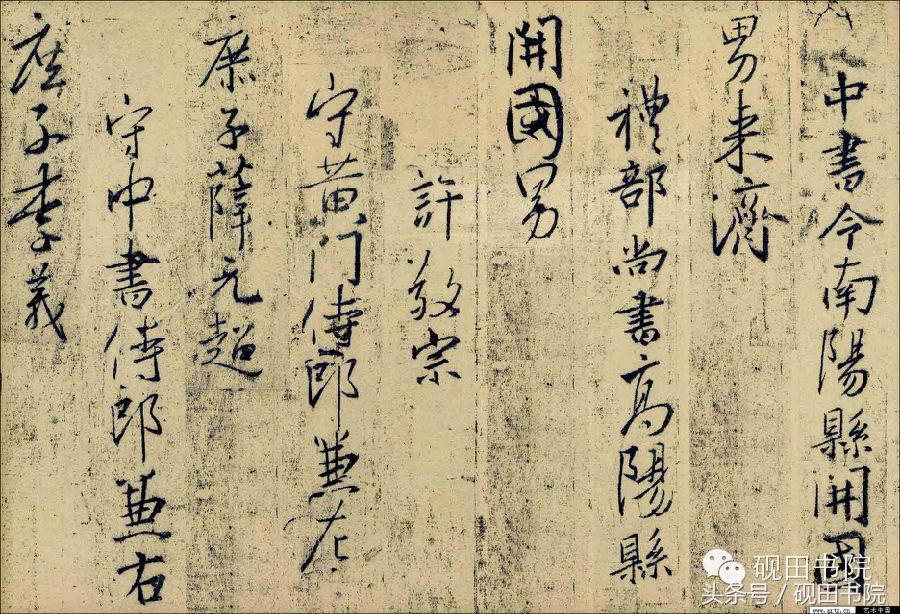 中書令南陽縣開國
男来濟
禮部尚書高陽縣
開國男
許敬宗
守黄门侍郎兼左
庶子薛元超
守中書侍郎兼右
庶子李義
砚田书院
头条号／砚田书院
www.artx.cn 艺术中国